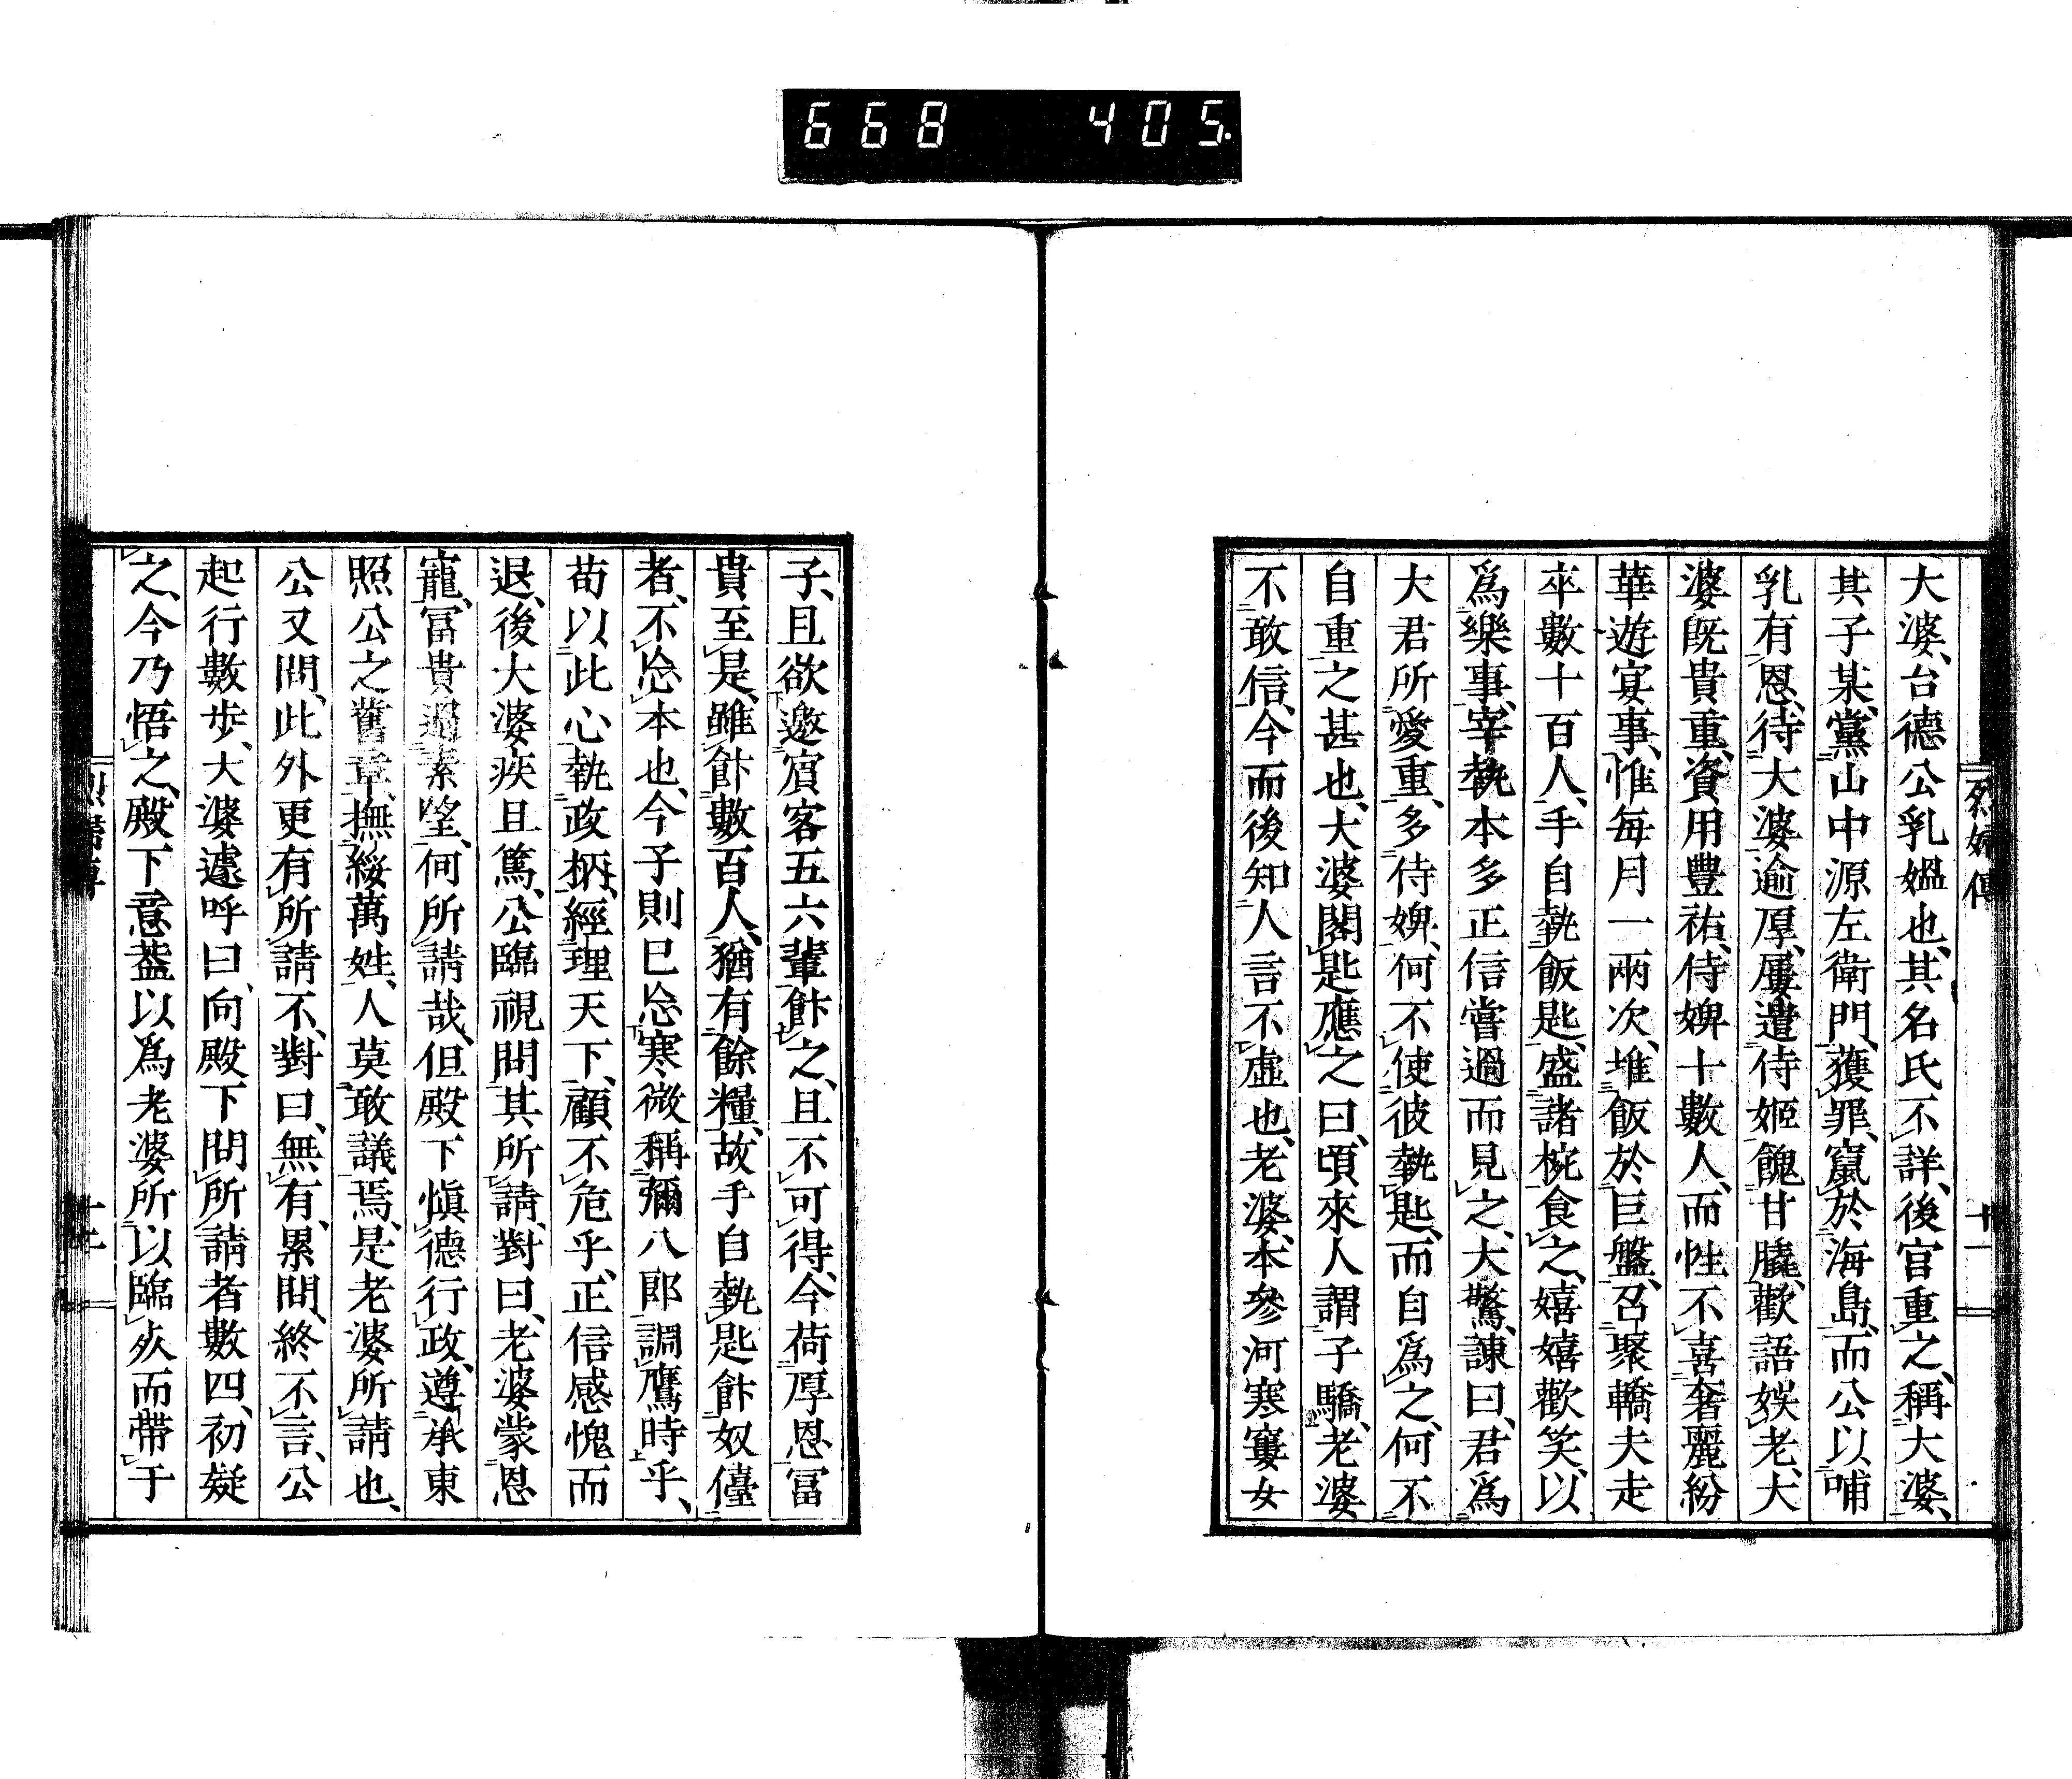 668 405.
烈婦傳 十一
大婆、台德公乳媼也、其名氏不詳、後宮重之、稱大婆、
其子某、黨山中源左衛門、獲罪、竄於海島、而公以哺
乳有恩、待大婆逾厚、屢遣侍姬餽甘臙、歡語娛老、大
婆既貴重、資用豐祐、侍婢十數人、而性不喜奢麗紛
華遊宴事、惟每月一兩次、堆飯於巨盤、召聚轎夫走
卒數十百人、手自執飯匙、盛諸椀食之、嬉嬉歡笑、以
爲樂事、宰執本多正信嘗過而見之、大驚、諫曰、君爲
大君所愛重、多侍婢、何不使彼執匙、而自爲之、何不
自重之甚也、大婆閣匙應之曰、頃來人謂子驕、老婆
不敢信、今而後知人言不虛也、老婆、本參河寒窶女
子、且欲邀賓客五六輩飰之、且不可得、今荷厚恩冨
貴至是、雖飰數百人、猶有餘糧、故手自執匙飰奴儓
者、不忘本也、今子則已忘寒微稱彌八郎調鷹時乎、
苟以此心執政柄、經理天下、顧不危乎、正信感愧而
退、後大婆疾且篤、公臨視問其所請、對曰、老婆蒙恩
寵、冨貴過素望、何所請哉、但殿下愼德行政、遵承東
照公之舊章、撫綏萬姓、人莫敢議焉、是老婆所請也、
公又問、此外更有所請不、對曰、無有、累問、終不言、公
起行數步、大婆遽呼曰、向殿下問所請者數四、初疑
之、今乃悟之、殿下意葢以爲老婆所以臨死而帶于